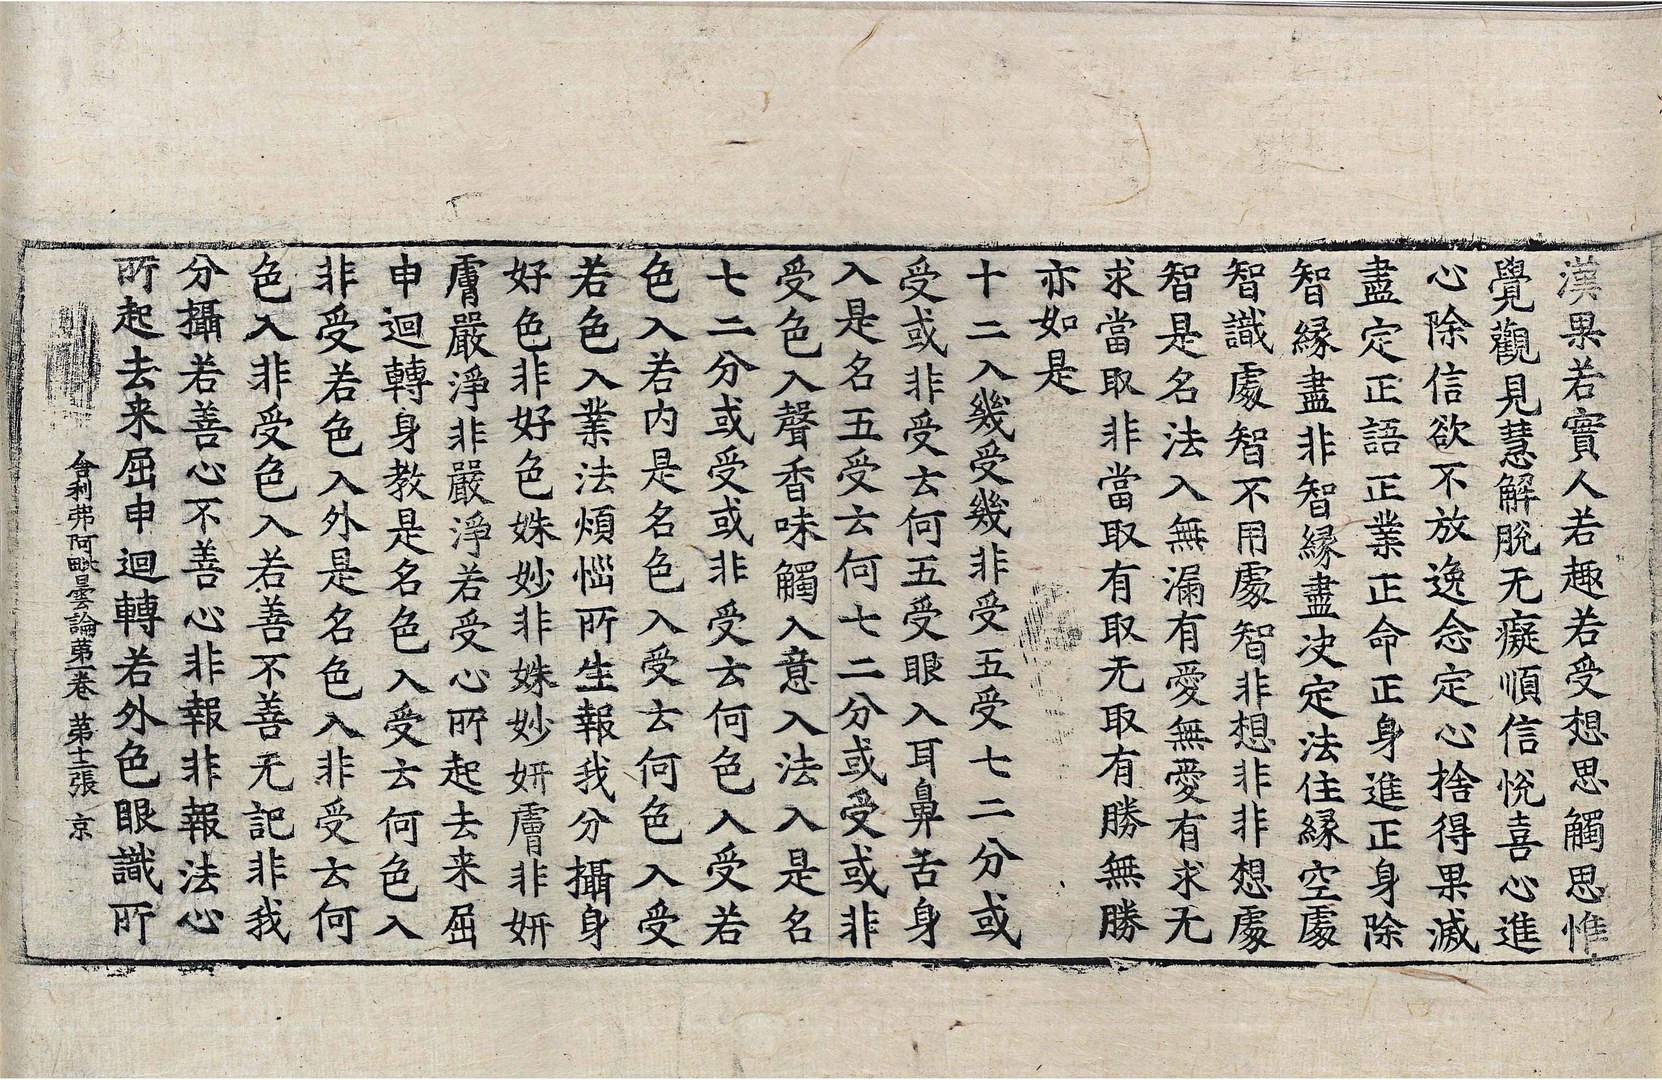 漢果若實人若趣若受想思觸思惟
覺觀見慧解脫无癡順信悅喜心進
心除信欲不放逸念定心捨得果滅
盡定正語正業正命正身進正身除
智縁盡非智縁盡决定法住縁空處
智識處智不用處智非想非非想處
智是名法入無漏有愛無愛有求无
求當取非當取有取无取有勝無勝
亦如是
十二入幾受幾非受五受七二分或
受或非受云何五受眼入耳鼻舌身
入是名五受云何七二分或受或非
受色入聲香味觸入意入法入是名
七二分或受或非受云何色入受若
色入若内是名色入受云何色入受
若色入業法煩惱所生報我分攝身
好色非好色姝妙非姝妙妍膚非妍
膚嚴淨非嚴淨若受心所起去来屈
申迴轉身教是名色入受云何色入
非受若色入外是名色入非受云何
色入非受色入若善不善无記非我
分攝若善心不善心非報非報法心
所起去来屈申迴轉若外色眼識所
舍利弗阿毗曇論第一卷 第十二張 京